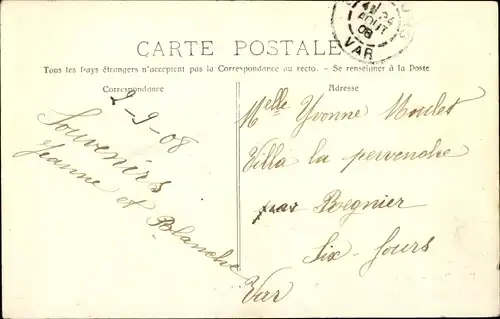 CARTE POSTALE
Tous les Pays étrangers n'acceptent pas la Correspondance au recto. - Se renseigner à la Poste
Correspondance
Adresse
2-9-08
Souvenirs
Jeanne et Blanche
Melle Yvonne Moulet
Villa la pervenche
par Regnier
Six-Fours
Var
24
AOUT
08
VAR